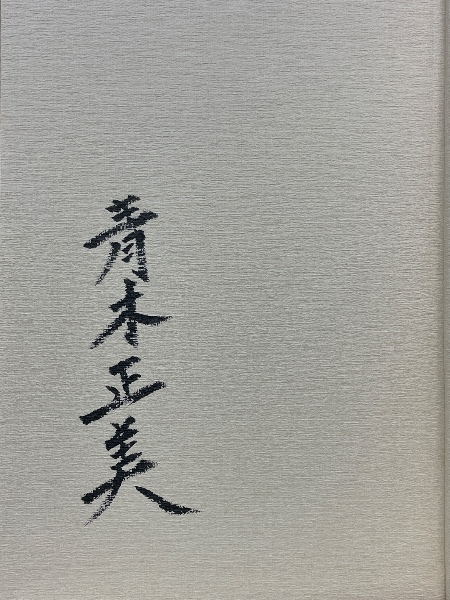 青木正美